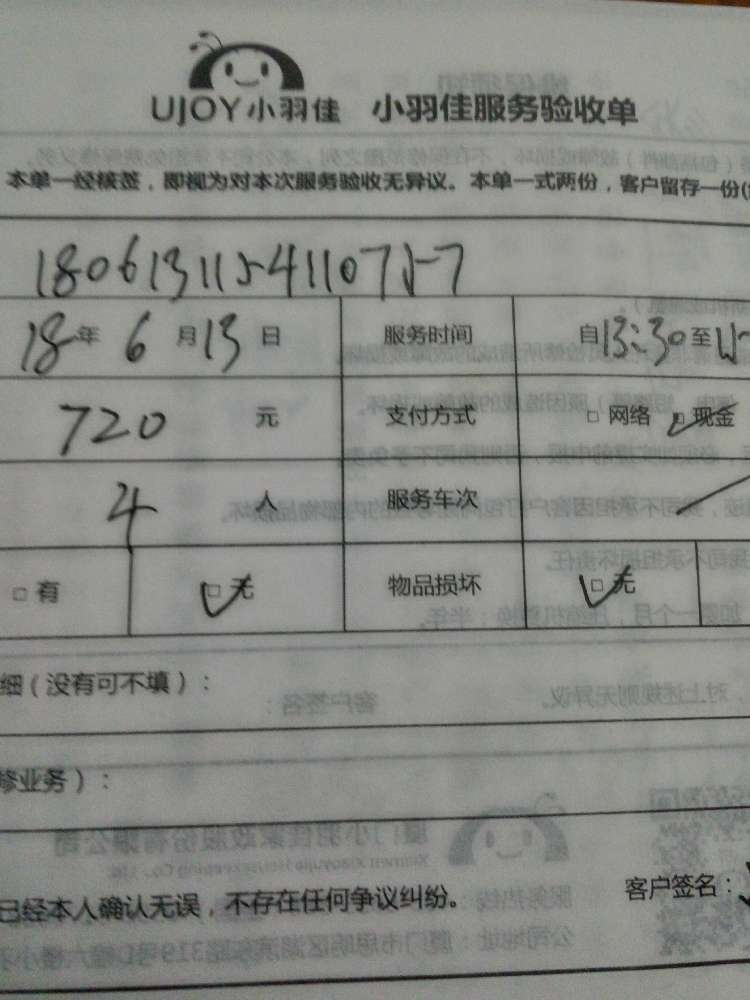 UJOY小羽佳 小羽佳服务验收单
本单一经核签，即视为对本次服务验收无异议。本单一式两份，客户留存一份
18061311541107157
18年 6月13日 服务时间 自13:30至
720 元 支付方式 □ 网络 □ 现金
4 人 服务车次
□ 有 □ 无 物品损坏 □ 无
细（没有可不填）：
修业务）：
已经本人确认无误，不存在任何争议纠纷。
客户签名：